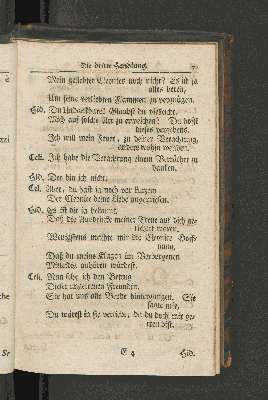 Die dritte Handlung.
Mein geliebter Cleonies noch nicht? Es ist ja
alles bereit,
Um seine verliebten Flammen zu vergnügen.
Hild. Du Undankbarer! Glaubst du vielleicht
Mich auf solche Art zu erweichen? Du hoffst
dieses vergebens.
Ich will mein Feuer, zu deiner Verachtung,
anders wohin wenden.
Celi. Ich habe die Verachtung einem Verächter zu
danken.
Hild. Der bin ich nicht.
Cel. Aber, du hast ja noch vor kurzem
Der Cleonice deine Liebe angewiesen.
Hild. Es ist dir ja bekannt,
Daß das Ausdrücke meiner Treue auf dich ge-
richtet waren.
Wenigstens machte mir die Cleonice Hoff-
nung,
Daß du meine Klagen im Verborgenen
Mitleidig anhören würdest.
Celi. Nun sehe ich den Betrug
Dieser ungetreuen Freundin.
Sie hat uns alle Beyde hintergangen. Sie
sagte mir,
Du wärest in sie verliebt, da du doch mit ge-
E 4
Hild.